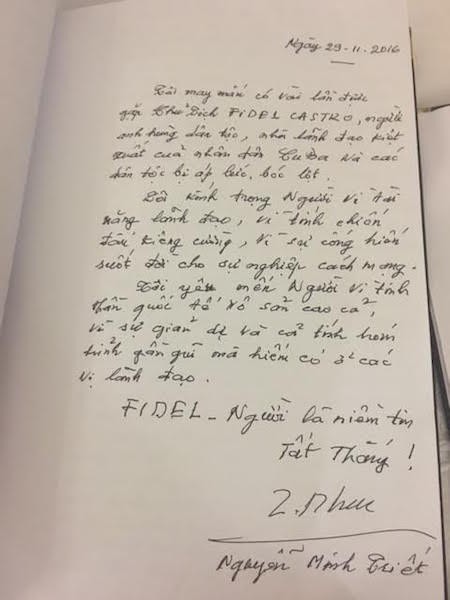 Ngày 29-11-2016
Tôi may mắn có vài lần được
gặp Chủ Tịch FIDEL CASTRO, người
anh hùng dân tộc, nhà lãnh đạo kiệt
xuất của nhân dân CuBa và các
dân tộc bị áp bức, bóc lột.
Tôi kính trọng Người vì tài
năng lãnh đạo, vì tính chiến
đấu kiên cường, vì sự cống hiến
suốt đời cho sự nghiệp cách mạng.
Tôi yêu mến Người vì tinh
thần quốc tế vô sản cao cả,
vì sự giản dị và cá tính hóm
hỉnh gần gũi mà hiếm có ở các
vị lãnh đạo.
FIDEL - Người là niềm tin
Tất Thắng!
Nguyễn Minh Triết